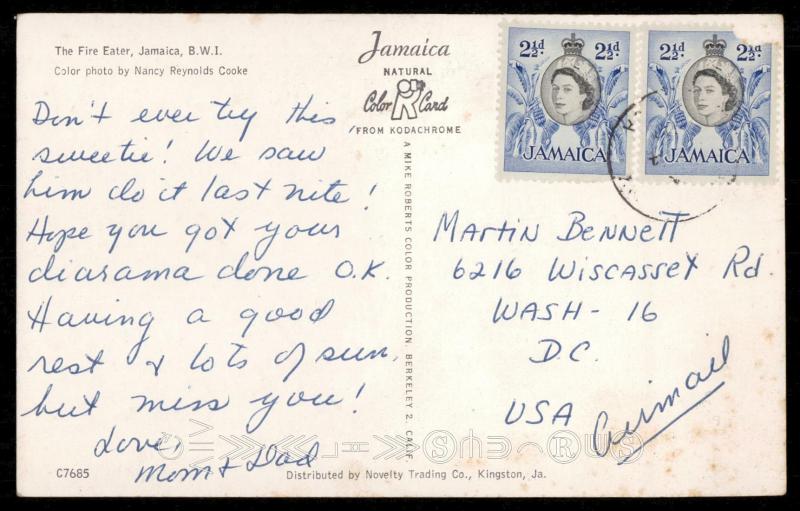 The Fire Eater, Jamaica, B.W.I.
Color photo by Nancy Reynolds Cooke
Don't ever try this
sweetie! We saw
him do it last nite!
Hope you got your
diarama done O.K.
Having a good
rest & lots of sun,
but miss you!
Love,
Mom & Dad
C7685
Jamaica
NATURAL
Color Card
FROM KODACHROME
A MIKE ROBERTS COLOR PRODUCTION, BERKELEY 2, CALIF.
Distributed by Novelty Trading Co., Kingston, Ja.
2½d. 2½d.
JAMAICA
2½d. 2½d.
JAMAICA
Martin Bennett
6216 Wiscasset Rd.
WASH-16
D.C.
USA
Airmail